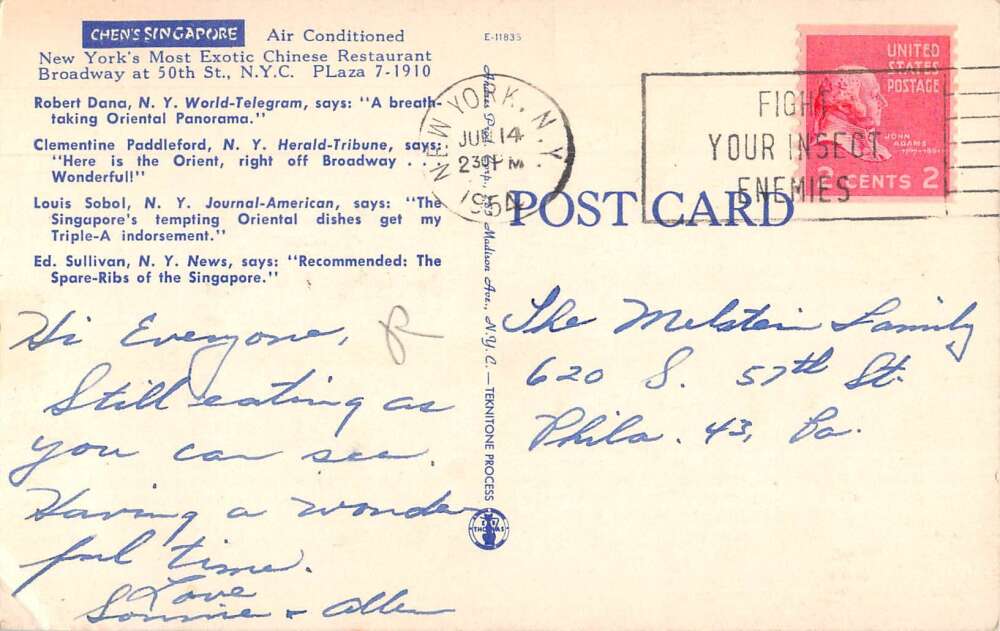 CHEN'S SINGAPORE Air Conditioned
New York's Most Exotic Chinese Restaurant
Broadway at 50th St., N.Y.C. PLaza 7-1910
Robert Dana, N. Y. World-Telegram, says: "A breath-
taking Oriental Panorama."
Clementine Paddleford, N. Y. Herald-Tribune, says:
"Here is the Orient, right off Broadway . . .
Wonderful!"
Louis Sobol, N. Y. Journal-American, says: "The
Singapore's tempting Oriental dishes get my
Triple-A indorsement."
Ed. Sullivan, N. Y. News, says: "Recommended: The
Spare-Ribs of the Singapore."
Hi Everyone,
Still eating as
you can see.
Having a wonder
ful time.
Love
& Allen
E-11835
Madison Ave., N.Y.C.—TEKNITONE PROCESS
THOMAS
NEW YORK, N.Y.
14
PM
1954
FIGHT
YOUR INSECT
ENEMIES
UNITED
STATES
POSTAGE
JOHN
ADAMS
2 CENTS 2
POST CARD
The Melstein Family
620 S. 57th St.
Phila. 43, Pa.